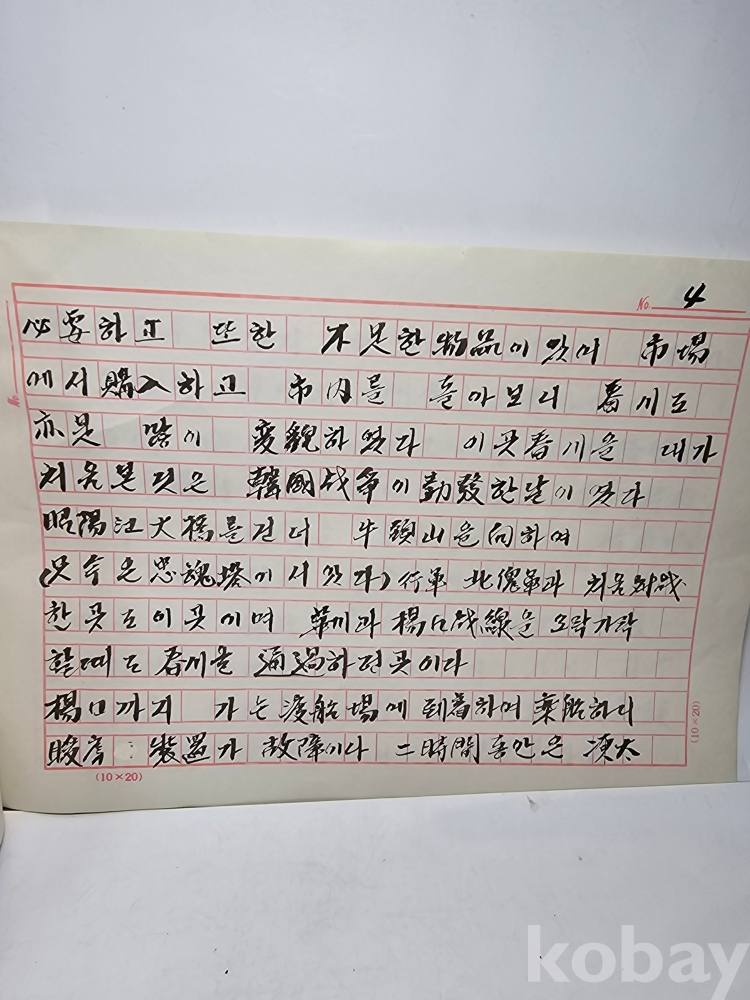 No. 4
必要하고 또한 不足한 物品이 있어 市場
에서 購入하고 市內를 돌아보니 春川도
亦是 많이 変貌하였다 이곳 春川을 내가
처음 본 것은 韓國战争이 勃發한 달이였다
昭陽江大橋를 건너 牛頭山을 向하여
(只今은 忠魂塔이 서 있다) 行軍 北傀軍과 처음 対战
한 곳도 이곳이며 華川과 楊口战線을 오락가락
할때도 春川을 通過하던 곳이다
楊口까지 가는 渡船場에 到着하여 乘船하니
裝置가 故障이나 二時間 동안은 凍太
(10×20)
(10×20)
kobay